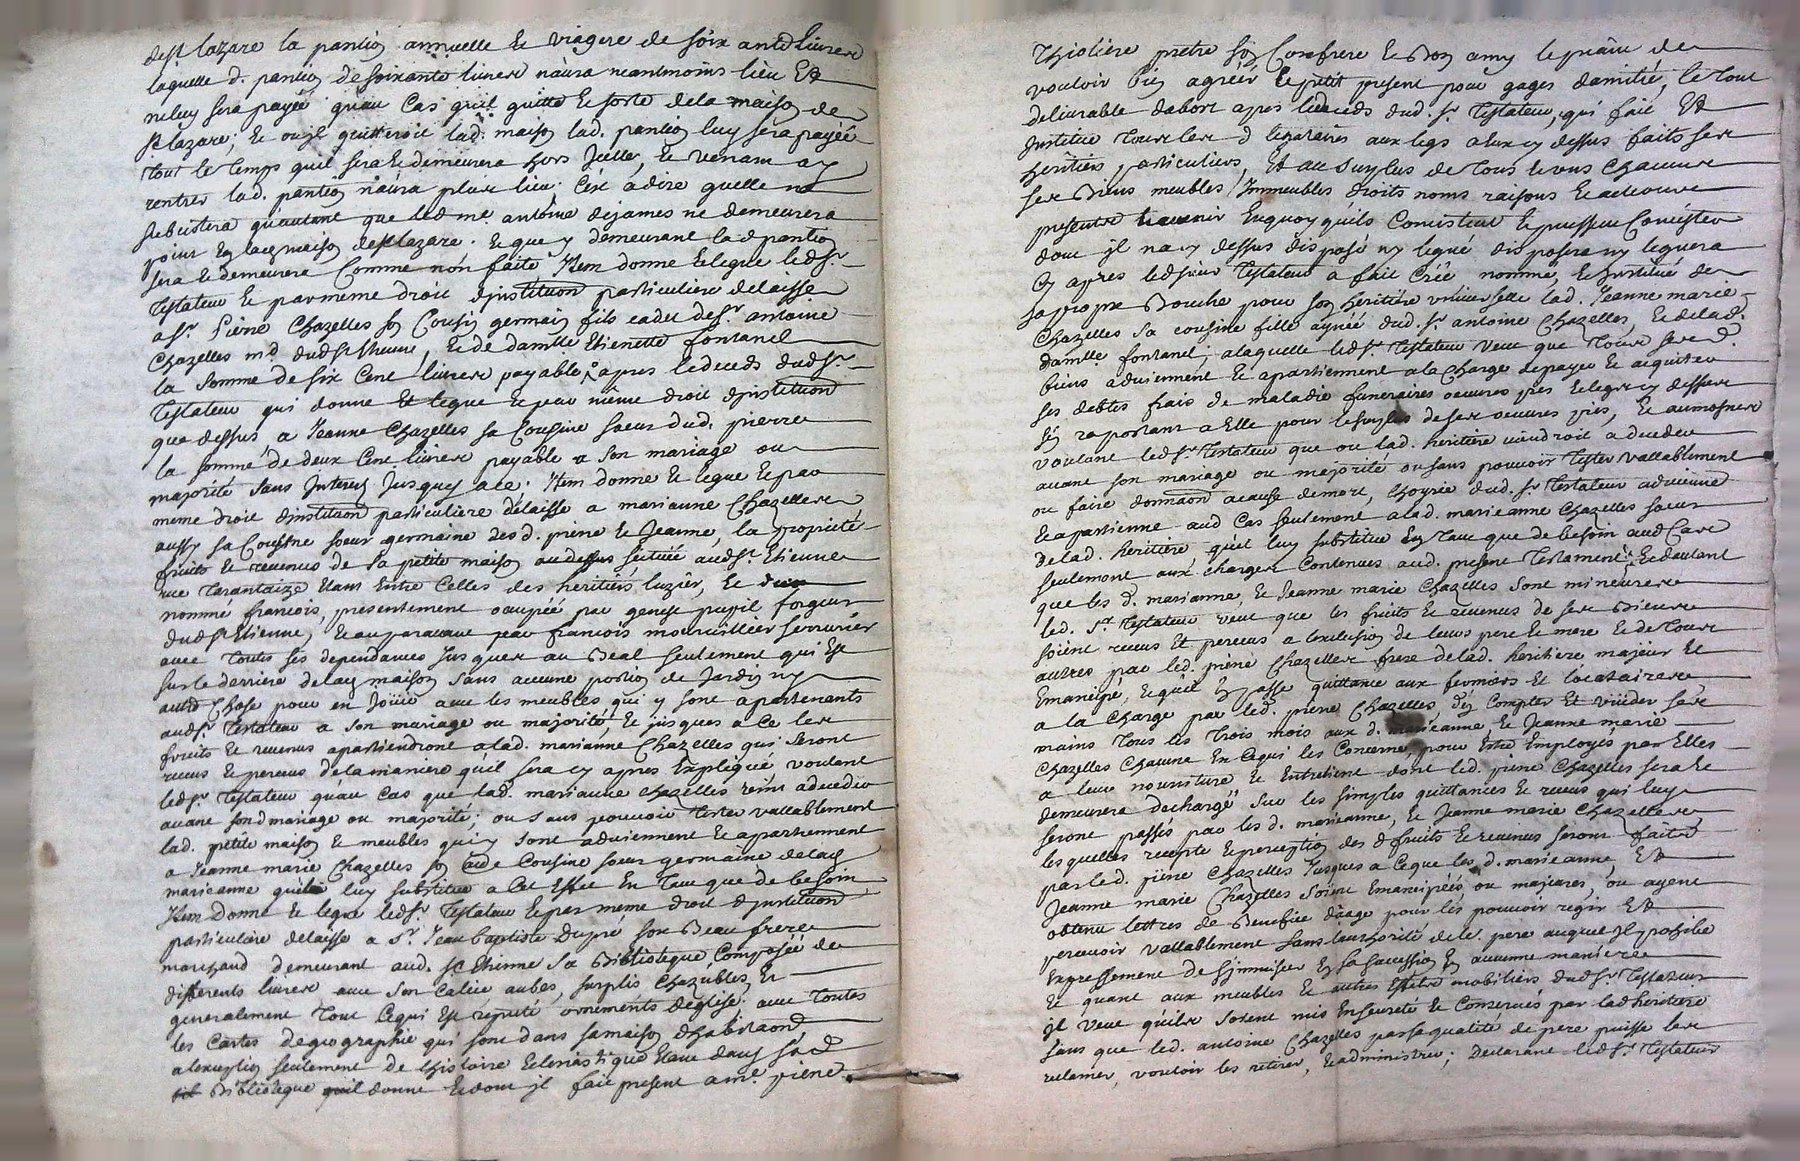 de St lazare la pantion annuelle et viagere de soixante livres
laquelle d. pantion de soixante livres n'aura neantmoins lieu Et
ne luy sera payée qu'au Cas qu'il quitte et sorte de la maison de
St lazare; Et ou il quitteroit lad. maison lad. pantion luy sera payée
tout le temps quil sera et demeurera hors Jcelle, et venant a y
rentrer lad. pantion n'aura plus lieu: C'est à dire quelle ne
subsistera qu'autant que led me antoine dejames ne demeurera
point En lad maison de St lazare. et que y demeurant lad pantion
sera et demeurera Comme non faite Item donne et legue led Sr
Testateur et par meme droit d'jnstitution particuliere delaisse
a Sr Pierre Chazelles son Cousin germain fils cadet de Sr antoine
Chazelles md dud St Etienne, et de damlle Etienette fontanel
la somme de six Cent livres payable apres le deceds dud Sr
Testateur qui donne Et legue et par même droit d'jnstitution
que dessus, a Jeanne Chazelles sa Cousine soeur dud. pierre
la somme de deux Cent livres payable a son mariage ou
majorité sans Jnterest Jusques a ce. Item donne et legue et par
meme droit d'jnstitution particuliere délaisse a marianne Chazelles
aussy sa Cousine soeur germaine desd. pierre et Jeanne, la propriété
fruits et revenus de sa petite maison au dessus scituée aud St Etienne
rue Tarantaize Etant Entre Celles des heritiers luzier, Et du
nommé francois, presentement occupée par genest pupil forgeur
dud St Etienne, et auparavant par francois serrurier
avec toutes ses dependances Jusques au Beal seulement qui Est
sur le derriere de lad maison sans aucune portion de Jardin ny
autre Chose pour en Joüir avec les meubles qui y sont apartenants
aud Sr Testateur a son mariage ou majorité, Et jusques a Ce les
fruits Et revenus apartiendront a lad. marianne Chazelles qui seront
recus Et percus de la maniere qu'il sera cy apres Expliqué voulant
led Sr Testateur quau Cas que lad. marianne Chazelles vint a deceder
avant son d mariage ou majorité; ou sans pouvoir Tester vallablement
lad. petite maison et meubles qui y sont adviennent Et apartiennent
a Jeanne marie Chazelles son autre Cousine soeur germaine de lad
marieanne qu'il luy substitue a Cet Effet En tant que de besoin
Item donne Et legue led Sr Testateur Et par même droit d'jnstitution
particuliere delaisse a Sr Jean baptiste Dupré son Beau frere
marchand demeurant aud. St Etienne sa Bibliotéque Composée de
differents livres avec son Calice aubes, surplis Chazubles, Et
generalement Tout Ce qui Est reputé ornements d'eglise. avec toutes
les Cartes de geographie qui sont dans sa maison d'habitaon
a l'exception seulement de l'histoire Eclesiastique Etant dans sad
Bibliotéque quil donne et dont jl fait present a me. pierre
Thiolière pretre son Confrere et Bon amy le priant de
vouloir bien agréer le petit present pour gages damitié, le tout
delivrable dabort apres le deceds dud. Sr Testateur, qui fait Et
Jnstitue tous les d legataires aux legs a Eux cy dessus faits ses
héritiers particuliers, Et au surplus de tous Et uns Chacuns
ses Biens meubles Jmmeubles droits noms raisons Et actions
presents Et avenir En quoy qu'ils Consistent Et puissent Consister
dont jl na cy dessus disposé ny legué disposera ny leguera
Cy apres led sieur Testateur a fait Créé nommé, Et Jnstitué de
sa propre Bouche pour son heritière universelle lad. Jeanne marie
Chazelles sa cousine fille aynée dud. Sr antoine Chazelles, Et de lad.
damlle fontanel; a laquelle led Sr Testateur veut que tous ses d.
biens adviennent Et apartiennent a la Charge de payer Et acquiter
ses debtes frais de maladie funeraires oeuvres pies Et legs cy dessus
s'en raportant a Elle pour le surplus de ses oeuvres pies, Et aumosnes
voulant led Sr Testateur que ou lad. heritiere viendroit a deceder
avant son mariage ou majorité ou sans pouvoir Tester vallablement
ou faire donnaon a cause de mort, l'hoyrie dud. Sr Testateur advienne
Et apartienne aud Cas seulement a lad. marieanne Chazelles soeur
de lad. heritière, qu'il luy substitue En tant que de besoin aud Cas
seulement aux charges Contenues aud. present Testament: Et d'autant
que les d. marianne, Et Jeanne marie Chazelles sont mineures
led. Sr Testateur veut que les fruits Et revenus de ses Biens
soient recus Et percus a l'exclusion de leurs pere Et mere Et de tous
autres par led. pierre Chazelles frere de lad. heritiere majeur Et
Emancipé, Et qu'il En passe quittance aux fermiers Et locataires
a la Charge par led. pierre Chazelles d'en Compter Et vuider ses
mains tous les trois mois aux d. marieanne, Et Jeanne marie
Chazelles Chacune En Ce qui les Concerne, pour Estre Employés par Elles
a leur nourriture Et Entretient dont led. pierre Chazelles sera Et
demeurera dechargé sur les simples quittances Et recus qui luy
seront passés par les d. marieanne, Et Jeanne marie Chazelles,
lesquelles recepte Et perception des d fruits Et revenus seront faites
par led. pierre Chazelles Jusques a Ce que les d. marieanne, Et
Jeanne marie Chazelles soient Emancipées ou majeures, ou ayent
obtenu lettres de Benefice d'aage pour les pouvoir regir Et
percevoir vallablement sans l'authorité de le. pere auquel Jl prohibe
Expressement de s'jmmiscer En sa succession En aucunne maniere
Et quant aux meubles Et autres Effets mobiliers dud Sr Testateur
jl veut qu'ils soient mis En seureté Et Conservés par lad heritiere
sans que led. antoine Chazelles par sa qualité de pere puisse les
reclamer, vouloir les retirer, Et administrer; declarant led Sr Testateur